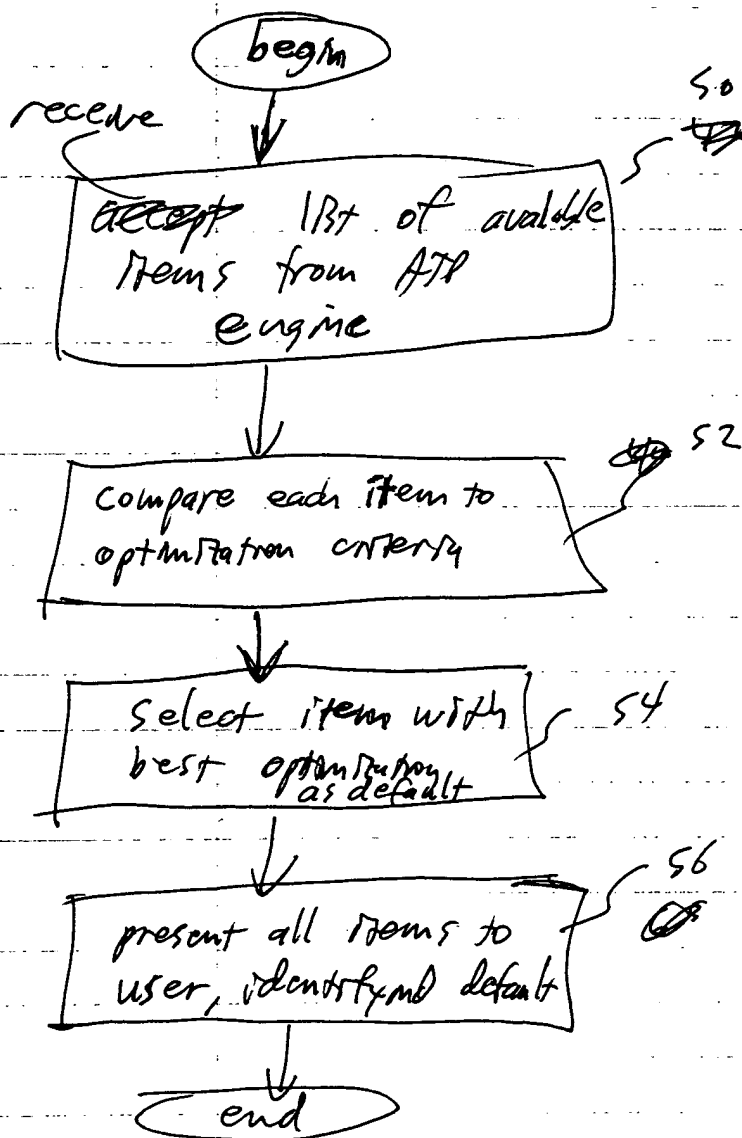 begin
receive
50
accept list of available
items from ATP
engine
52
compare each item to
optimization criteria
select item with
best optimization
as default
54
56
present all items to
user, identifying default
end